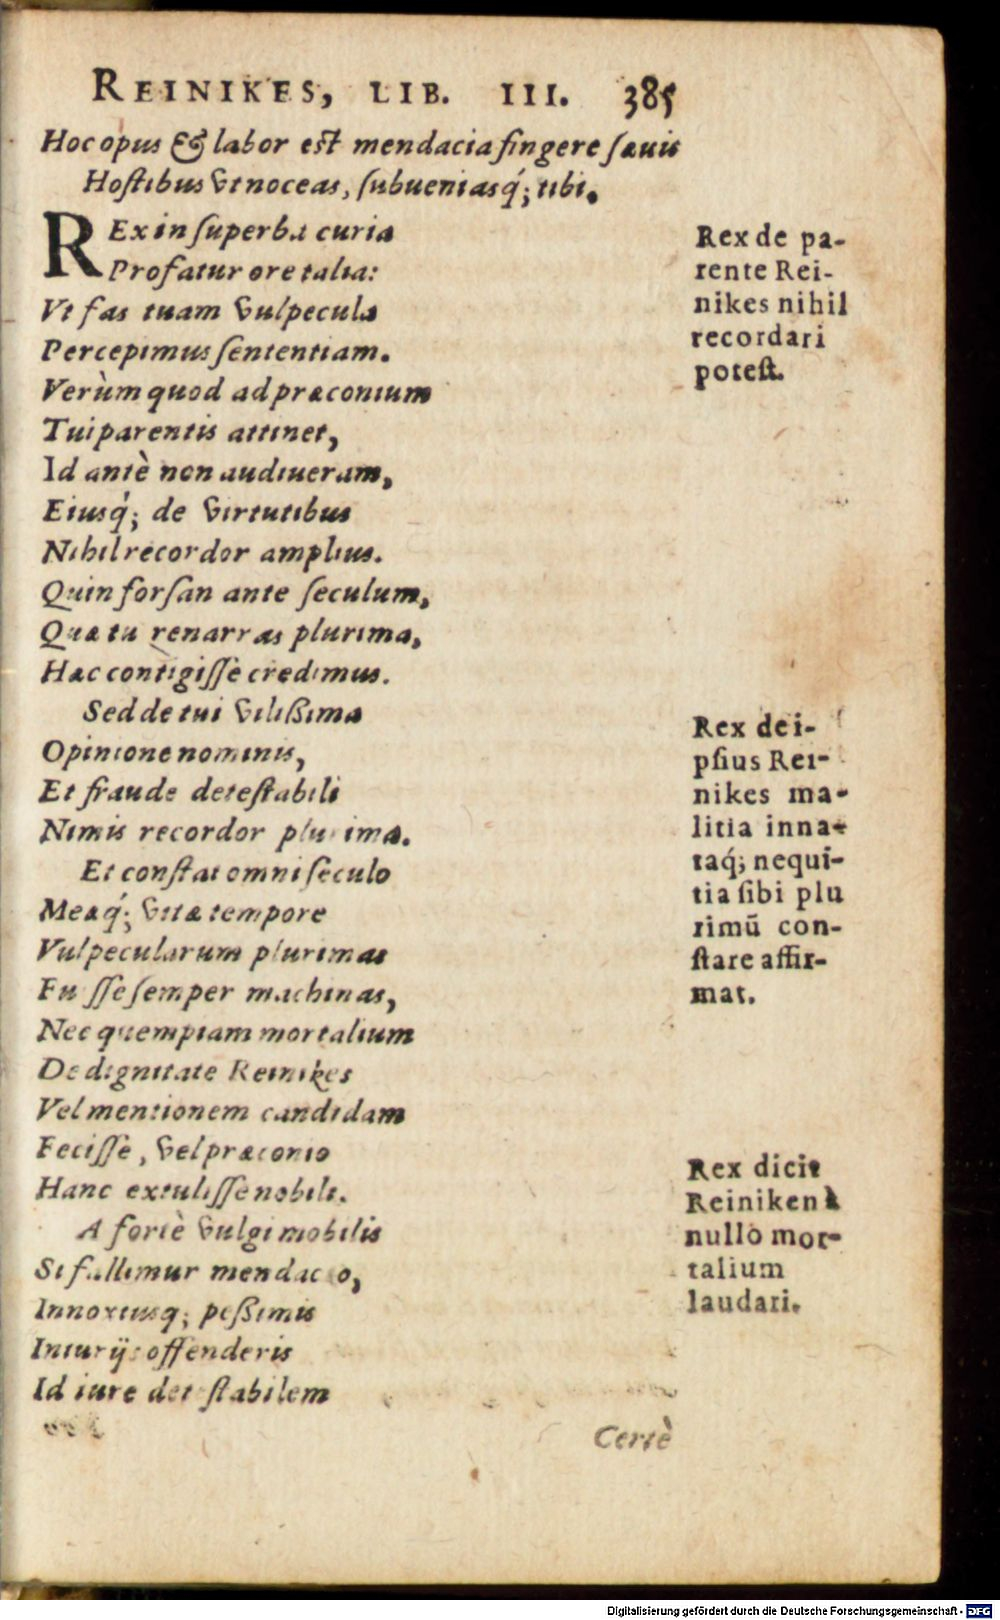 REINIKES, LIB. III. 385
Hoc opus & labor est mendacia fingere sæuis
Hostibus vt noceas, subueniasq́; tibi.
REx in superba curia
Profatur ore talia:
Vt fas tuam vulpecula
Percepimus sententiam.
Verùm quod ad præconium
Tui parentis attinet,
Id antè non audiueram,
Eiusq́; de virtutibus
Nihil recordor amplius.
Quin forsan ante seculum,
Quæ tu renarras plurima,
Hæc contigisse credimus.
Sed de tui vilißima
Opinione nominis,
Et fraude detestabili
Nimis recordor plurima.
Et constat omni seculo
Meæq́; vitæ tempore
Vulpecularum plurimas
Fuisse semper machinas,
Nec quempiam mortalium
De dignitate Reinikes
Vel mentionem candidam
Fecisse, vel præconio
Hanc extulisse nobili.
A fortè vulgi mobilis
Si fallimur mendacio,
Innoxiusq; peßimis
Iniurijs offenderis
Id iure detestabilem
Certè
Rex de pa-
rente Rei-
nikes nihil
recordari
potest.
Rex de i-
psius Rei-
nikes ma-
litia inna-
taq́; nequi-
tia sibi plu
rimū con-
stare affir-
mat.
Rex dicit
Reiniken à
nullo mor-
talium
laudari.
Digitalisierung gefördert durch die Deutsche Forschungsgemeinschaft - DFG